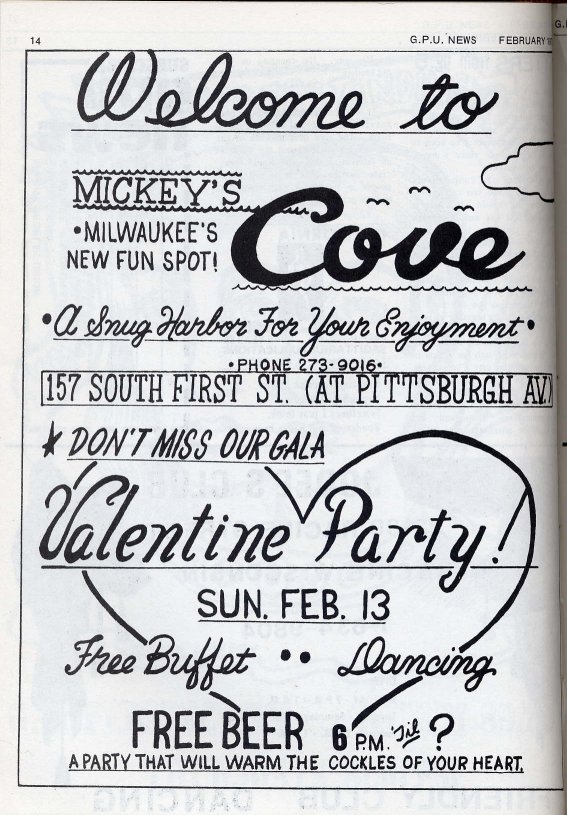 14
G.P.U. NEWS FEBRUARY
Welcome to
MICKEY'S
Cove
•MILWAUKEE'S
NEW FUN SPOT!
•A Snug Harbor For Your Enjoyment•
•PHONE 273-9016•
157 SOUTH FIRST ST. (AT PITTSBURGH AV.)
★ DON'T MISS OUR GALA
Valentine Party!
SUN. FEB. 13
Free Buffet •• Dancing
FREE BEER 6 P.M. 'Til ?
A PARTY THAT WILL WARM THE COCKLES OF YOUR HEART.